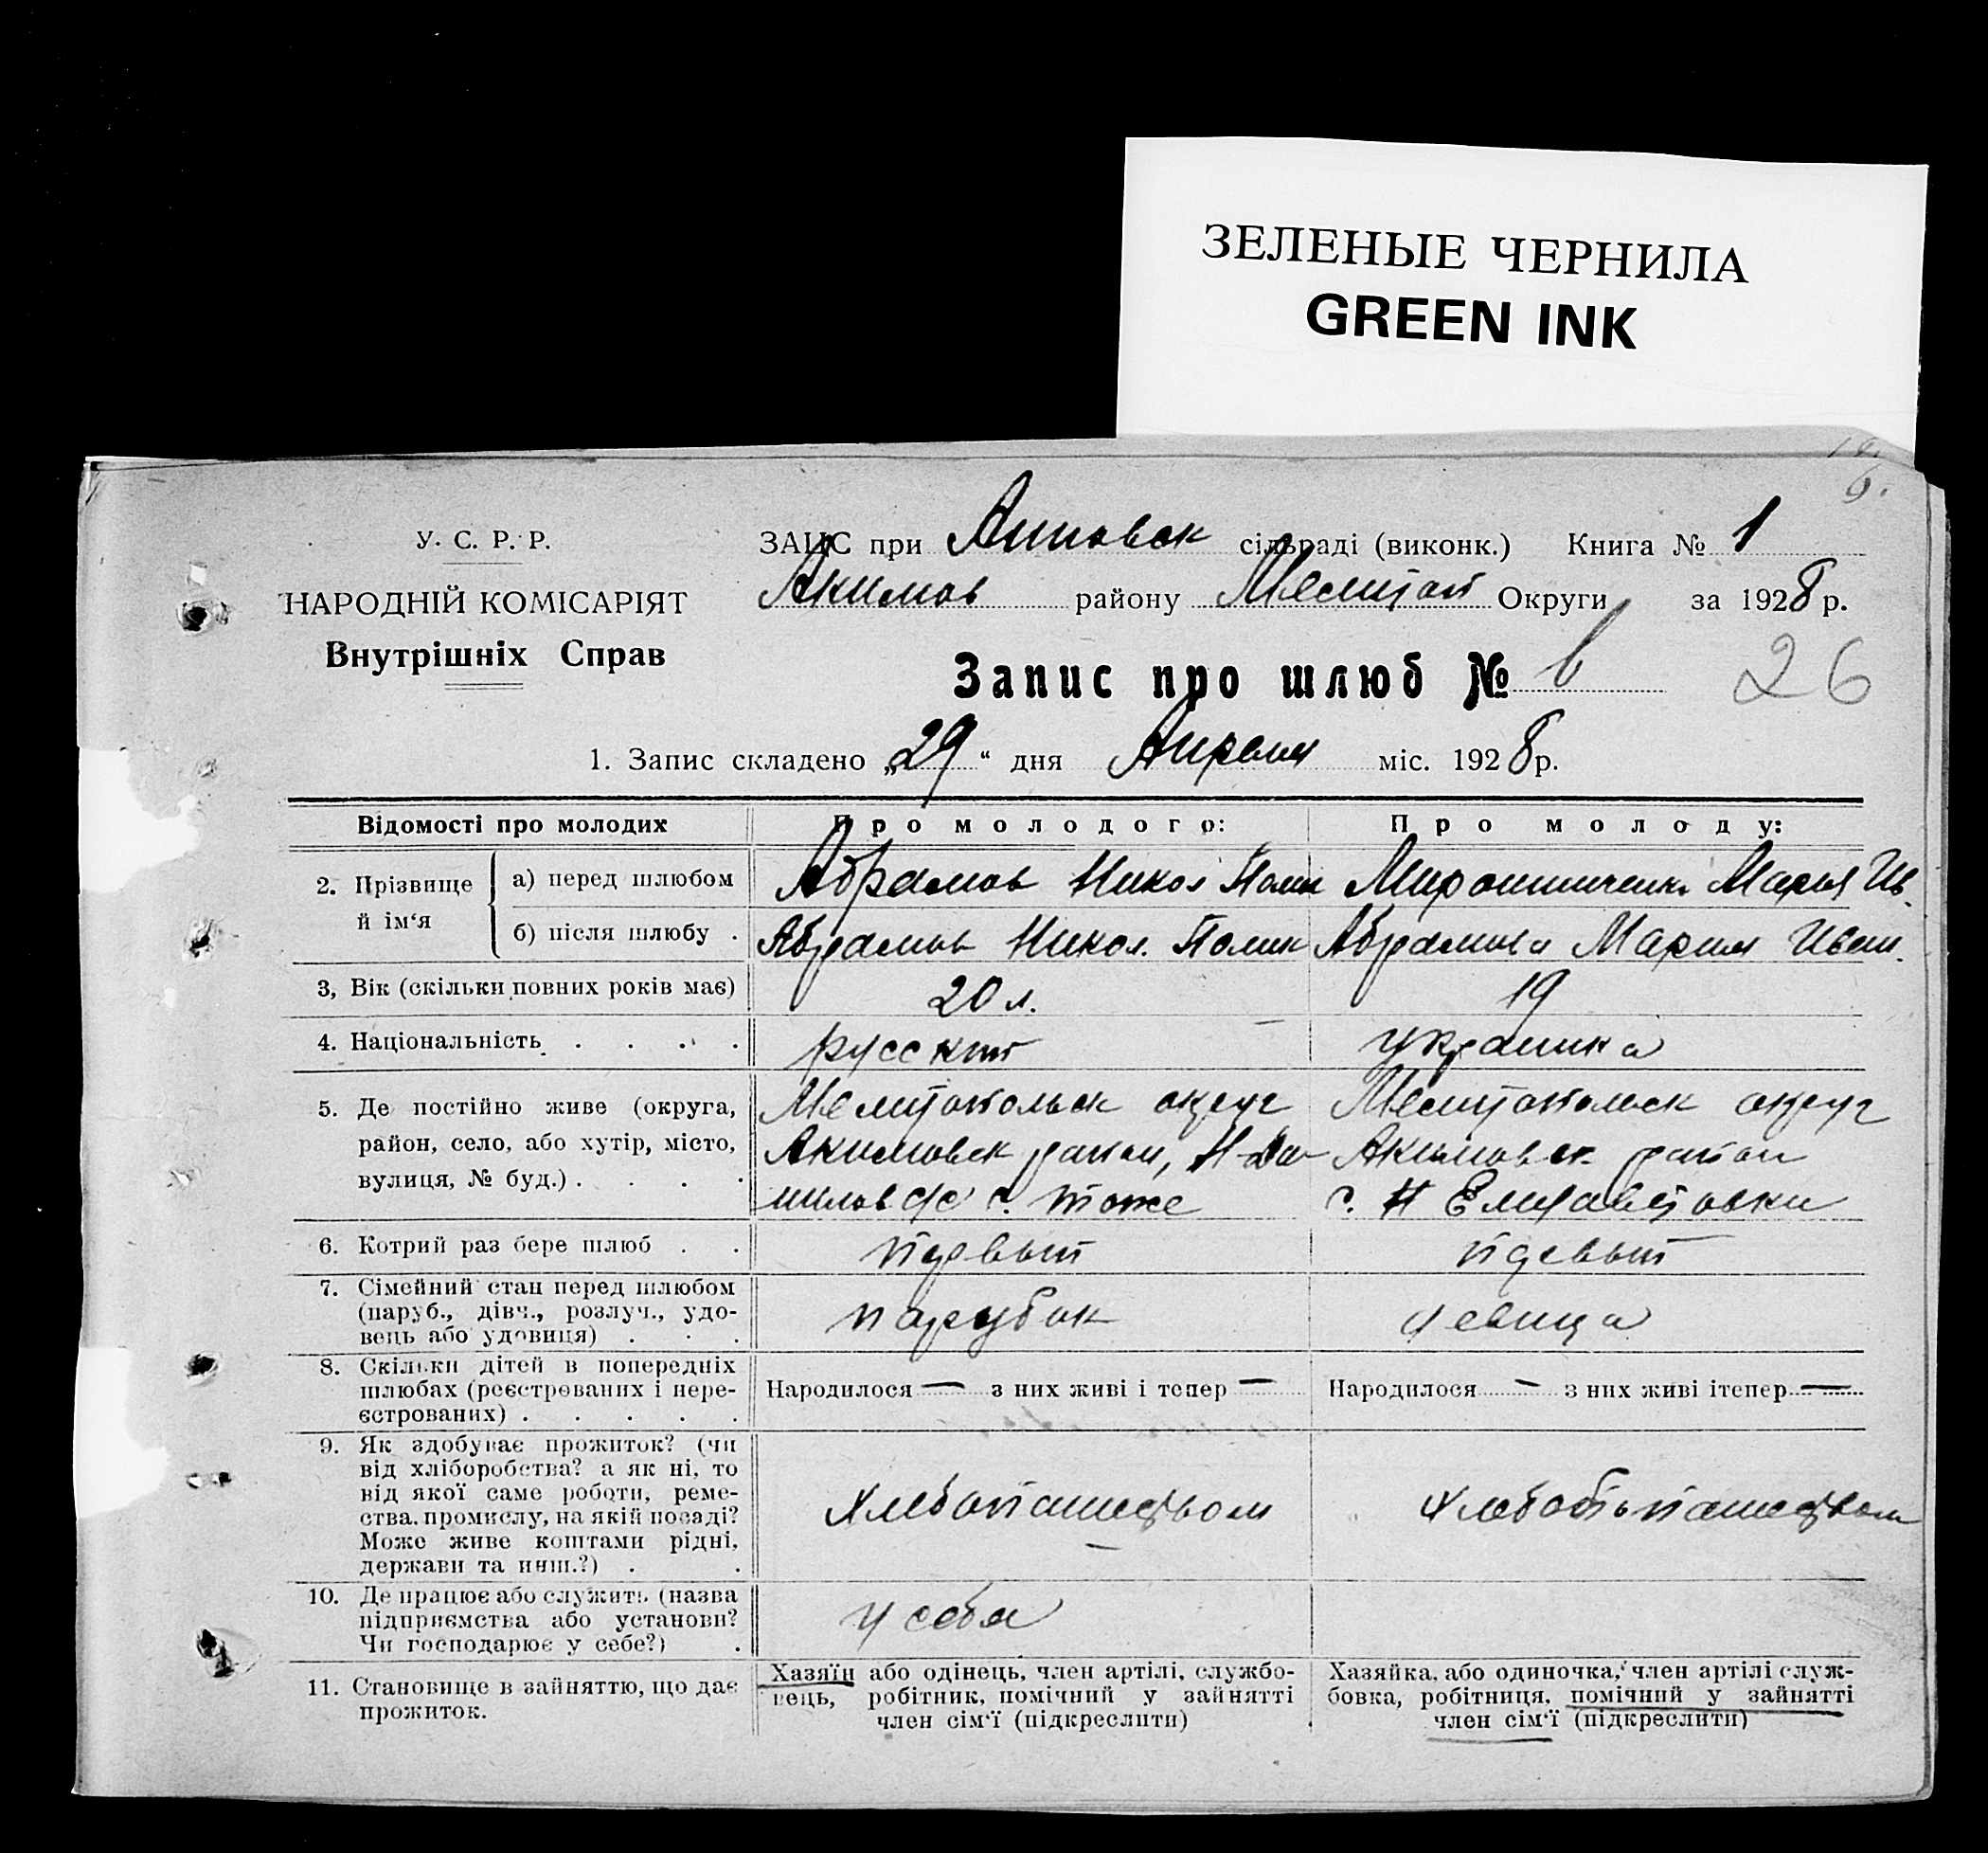 ЗЕЛЕНЫЕ ЧЕРНИЛА
GREEN INK
6.
У. С. Р. Р.
НАРОДНІЙ КОМІСАРІЯТ
Внутрішніх Справ
ЗАГС при Анновск сільраді (виконк.) Книга № 1
Акимов району Мелитоп Округи за 1928 р.
Запис про шлюб № 6
26
1. Запис складено „29“ дня Апреля міс. 1928 р.
Відомості про молодих
Про молодого:
Про молоду:
2. Прізвище й ім‘я
а) перед шлюбом
Абрамов Никол
Мирошниченко Мария Ив.
б) після шлюбу .
Абрамов Никол.
Абрамова Мария Иван.
3, Вік (скільки повних років має)
20 л.
19
4. Національність . . . .
русский
украинка
5. Де постійно живе (округа,
район, село, або хутір, місто,
вулиця, № буд.) . . . .
Мелитопольск округ
Акимовск район, Н-Да-
нилов с/с с. тоже
Мелитопольск округ
Акимовск. район
с. Н Елизаветовки
6. Котрий раз бере шлюб . .
первый
первый
7. Сімейний стан перед шлюбом
(паруб., дівч., розлуч., удо-
вець або удовиця) . . .
парубок
девица
8. Скільки дітей в попередніх
шлюбах (реєстрованих і нере-
єстрованих) . . . . .
Народилося — з них живі і тепер —
Народилося — з них живі ітепер —
9. Як здобуває прожиток? (чи
від хліборобства? а як ні, то
від якої саме роботи, реме-
ства, промислу, на якій посаді?
Може живе коштами рідні,
держави та инш.?) . .
Хлебопашеством
10. Де працює або служить (назва
підприємства або установи?
Чи господарює у себе?) .
у себя
11. Становище в зайняттю, що дає
прожиток.
Хазяїн або одінець, член артілі, службо-
вець, робітник, помічний у зайнятті
член сім‘ї (підкреслити)
Хазяйка, або одиночка, член артілі служ-
бовка, робітниця, помічний у зайнятті
член сім‘ї (підкреслити)